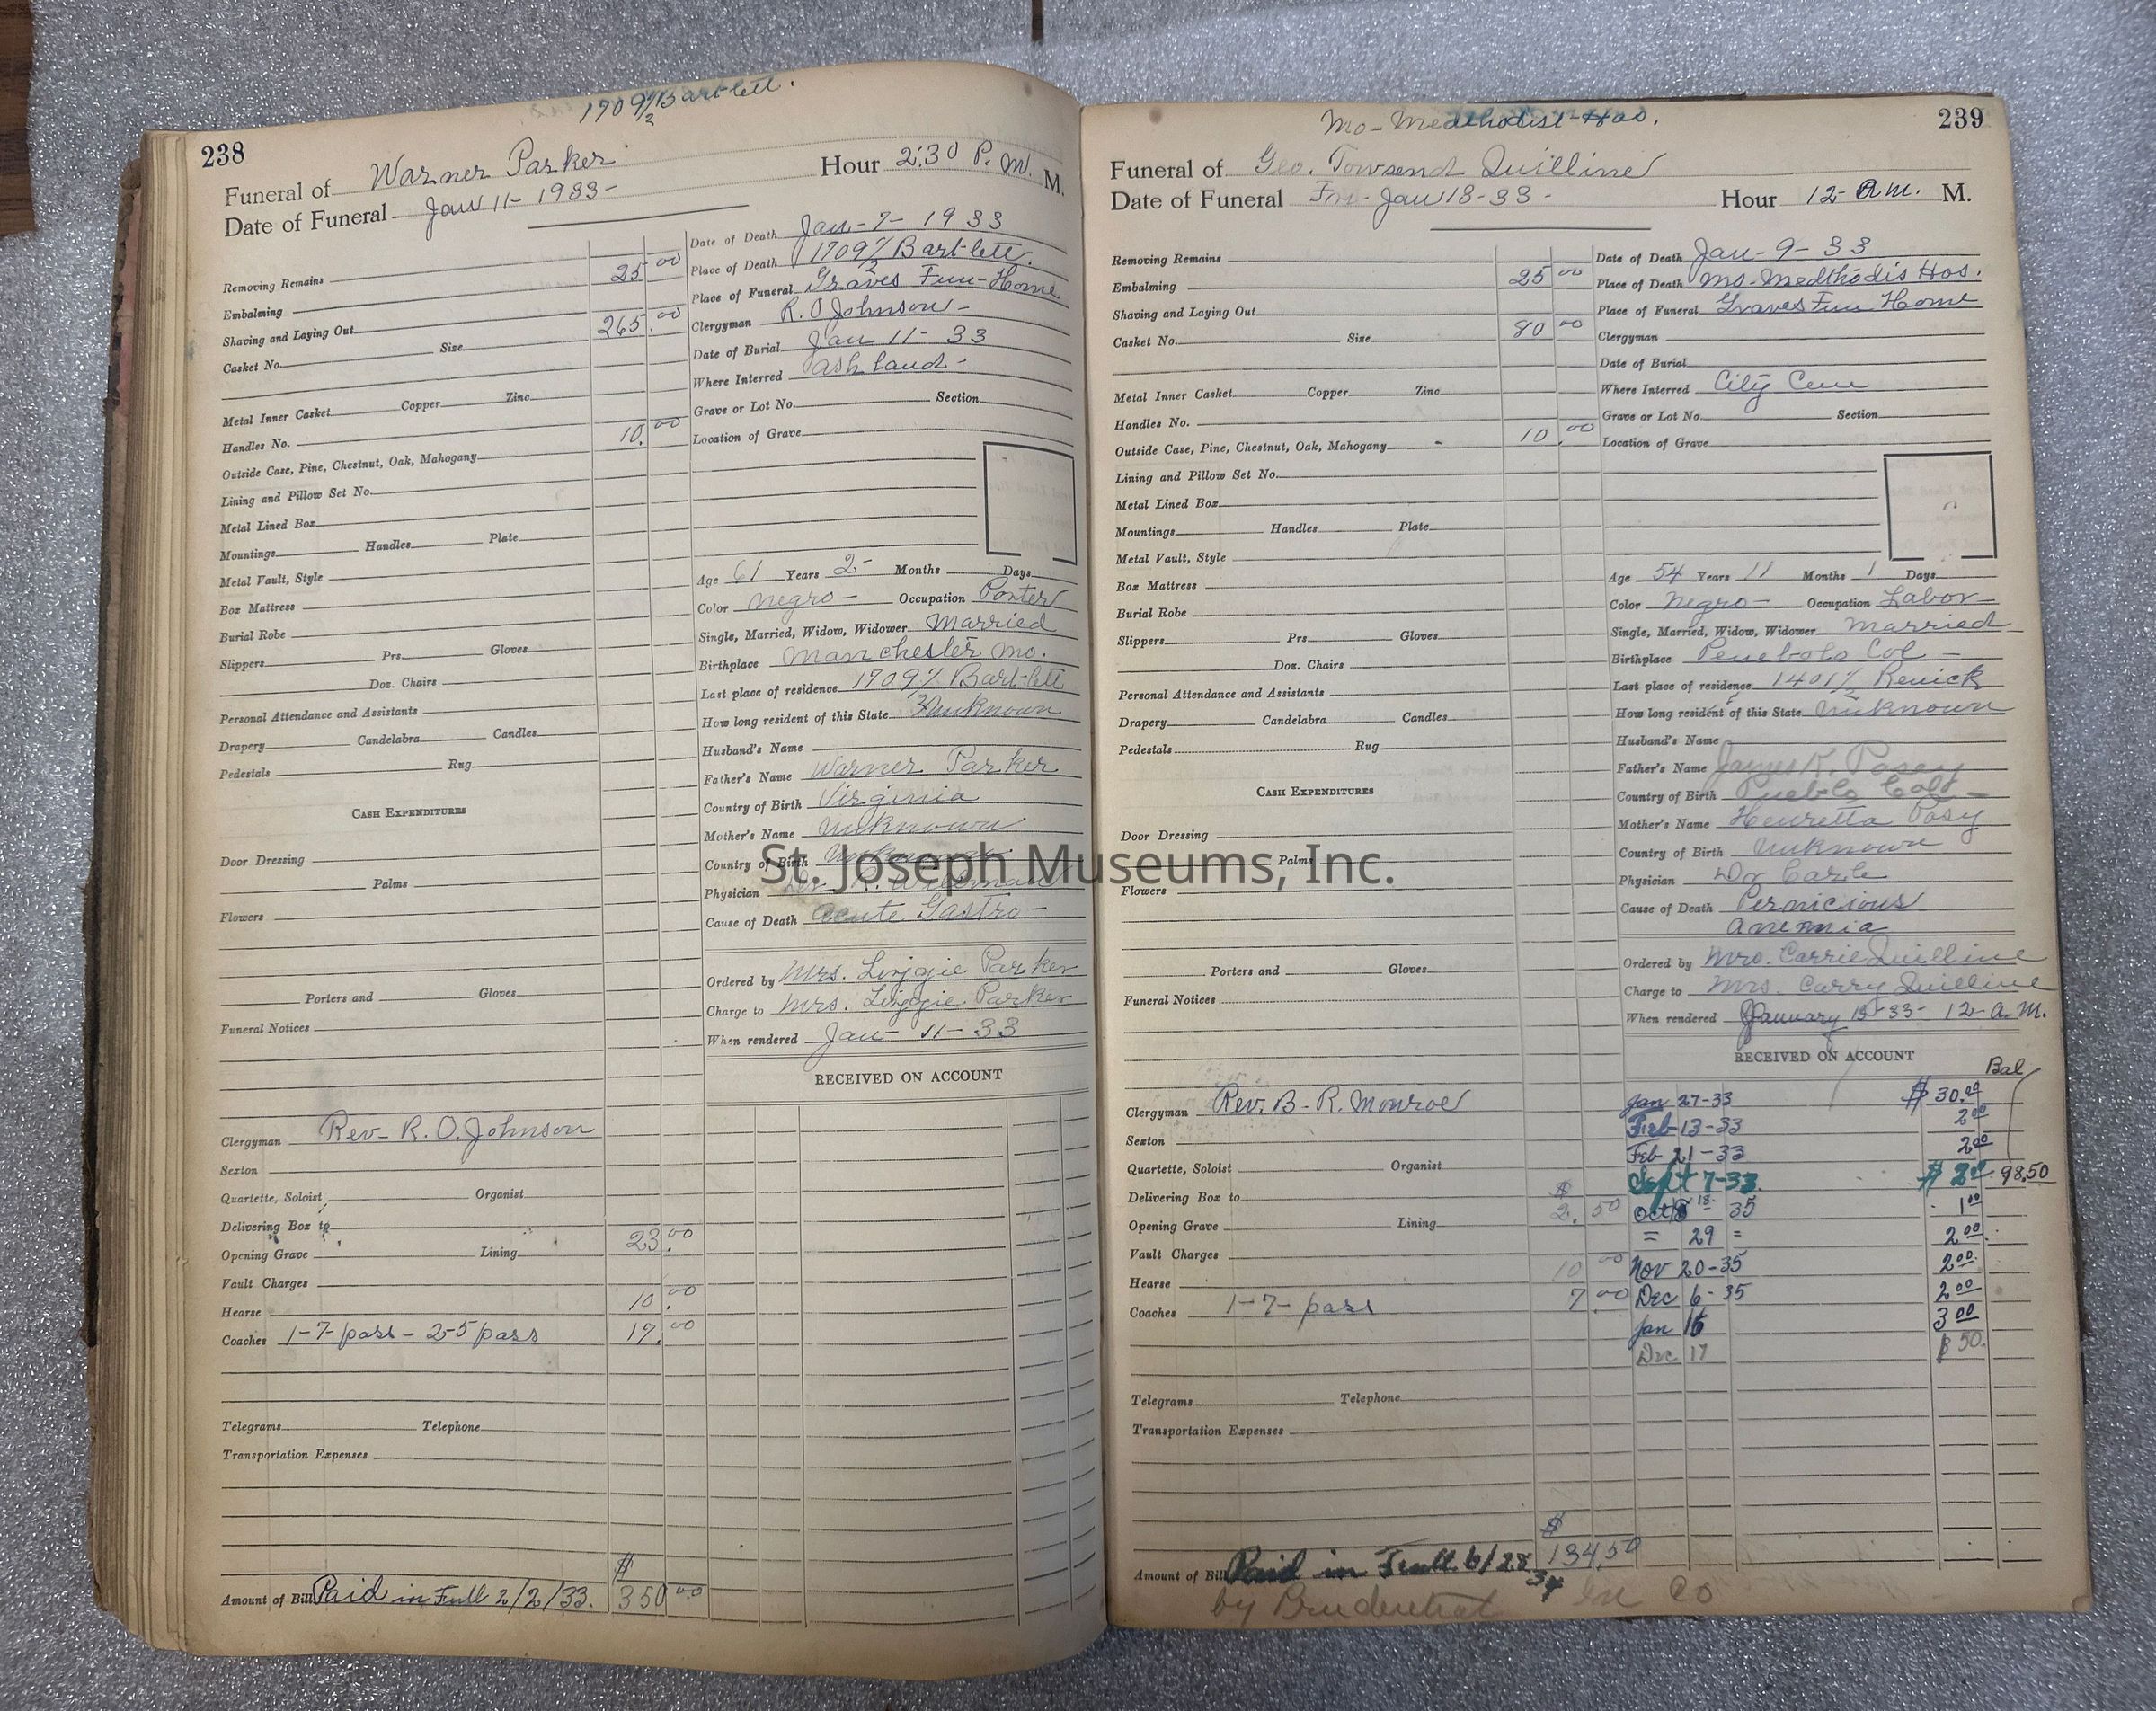 1709 1/2 Bartlett.
238
Funeral of Warner Parker Hour 2:30 P.M. M.
Date of Funeral Jan 11- 1933-
Removing Remains
Embalming 25.00
Shaving and Laying Out
Casket No. Size 265.00
Metal Inner Casket Copper Zinc
Handles No.
Outside Case, Pine, Chestnut, Oak, Mahogany 10.00
Lining and Pillow Set No.
Metal Lined Box
Mountings Handles Plate
Metal Vault, Style
Box Mattress
Burial Robe
Slippers Prs. Gloves
Doz. Chairs
Personal Attendance and Assistants
Drapery Candelabra Candles
Pedestals Rug
CASH EXPENDITURES
Door Dressing
Palms
Flowers
Porters and Gloves
Funeral Notices
Clergyman Rev- R. O. Johnson
Sexton
Quartette, Soloist Organist
Delivering Box to
Opening Grave Lining 23.00
Vault Charges
Hearse 10.00
Coaches 1-7-pass- 2-5 pass 17.00
Telegrams Telephone
Transportation Expenses
$
Amount of Bill Paid in Full 2/2/33. 350.00
Date of Death Jan-7- 1933
Place of Death 1709 1/2 Bartlett.
Place of Funeral Graves Fun-Home
Clergyman R. O Johnson-
Date of Burial Jan 11- 33
Where Interred Ashland-
Grave or Lot No. Section
Location of Grave
Age 61 Years 2- Months Days
Color Negro- Occupation Porter
Single, Married, Widow, Widower Married
Birthplace Manchester Mo.
Last place of residence 1709 1/2 Bartlett
How long resident of this State Unknown
Husband's Name
Father's Name Warner Parker
Country of Birth Virginia
Mother's Name Unknown
Country of Birth Unknown
Physician Dr.
Cause of Death Acute Gastro-
Ordered by Mrs. Lizzie Parker
Charge to Mrs. Lizzie Parker
When rendered Jan- 11- 33
RECEIVED ON ACCOUNT
St. Joseph Museums, Inc.
Mo- Medthodist Hos.
239
Funeral of Geo. Towsend Quilline
Date of Funeral Fri- Jan 13-33- Hour 12- A.m. M.
Removing Remains
Embalming 25.00
Shaving and Laying Out
Casket No. Size 80.00
Metal Inner Casket Copper Zinc
Handles No.
Outside Case, Pine, Chestnut, Oak, Mahogany 10.00
Lining and Pillow Set No.
Metal Lined Box
Mountings Handles Plate
Metal Vault, Style
Box Mattress
Burial Robe
Slippers Prs. Gloves
Doz. Chairs
Personal Attendance and Assistants
Drapery Candelabra Candles
Pedestals Rug
CASH EXPENDITURES
Door Dressing
Palms
Flowers
Porters and Gloves
Funeral Notices
Clergyman Rev. B- R. Monroe
Sexton
Quartette, Soloist Organist
Delivering Box to $
Opening Grave Lining 2.50
Vault Charges
Hearse 10 00
Coaches 1-7- pass 7.00
Telegrams Telephone
Transportation Expenses
$
Amount of Bill Paid in Full 6/28 34 134.50
by Prudential In Co
Date of Death Jan-9-33
Place of Death Mo-Medthodis Hos.
Place of Funeral Graves Fun Home
Clergyman
Date of Burial
Where Interred City Cem
Grave or Lot No. Section
Location of Grave
Age 54 Years 11 Months 1 Days
Color Negro- Occupation Labor-
Single, Married, Widow, Widower Married
Birthplace Peuebolo Col-
Last place of residence 1401 1/2 Renick
How long resident of this State Unknown
Husband's Name
Father's Name James K. Posey
Country of Birth Pueblo Colo-
Mother's Name Henretta Posy
Country of Birth Unknown
Physician Dr Carle
Cause of Death Pernicious
Anemia
Ordered by Mrs. Carrie Quilline
Charge to Mrs. Carry Quilline
When rendered January 13-33- 12-A.M.
RECEIVED ON ACCOUNT
Bal
Jan 27-33 $30.00
Feb-13-33 2.00
Feb 21-33 2.00
Sept 7-33. $2.00 98.50
Oct 18- 35 1.00
= 29 = 2.00
Nov 20-35 2.00
Dec 6-35 2.00
Jan 16 3.00
Dec 17 $50.